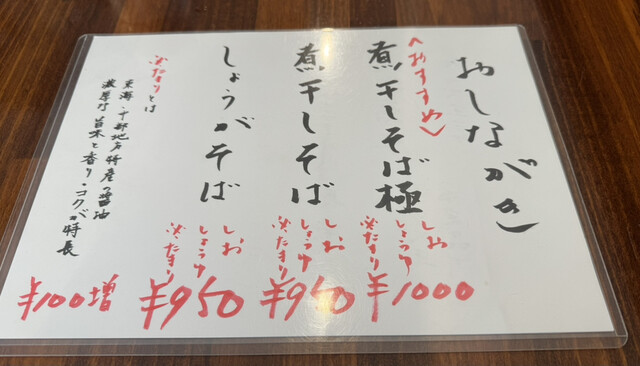 おしながき
<おすすめ>
煮干しそば極
しお
しょうゆ
※たまり
¥1000
煮干しそば
しお
しょうゆ
※たまり
¥950
しょうがそば
しお
しょうゆ
※たまり
¥950
※たまりとは
東海・中部地方特産の醤油
濃厚な旨味と香り・コクが特長
¥100増